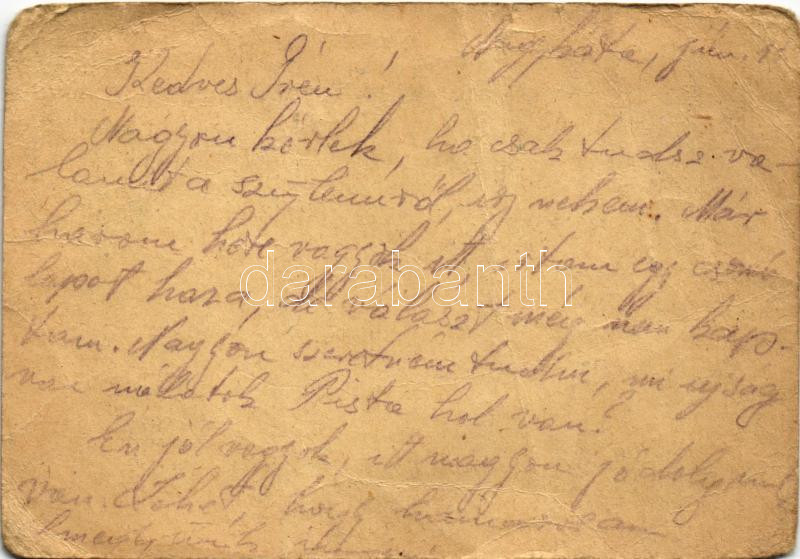 Nagybáta, jún.
Kedves Irén!
Nagyon kérlek, ha csak tudsz va-
lamit a szüleimről, írj nekem. Már
három hete vagyok itt, írtam egy csomó
lapot haza, de választ még nem kap-
tam. Nagyon szeretném tudni, mi ujság
van nálatok. Pista hol van?
Én jól vagyok, itt nagyon jó dolgunk
van. Lehet, hogy hamarosan
darabanth